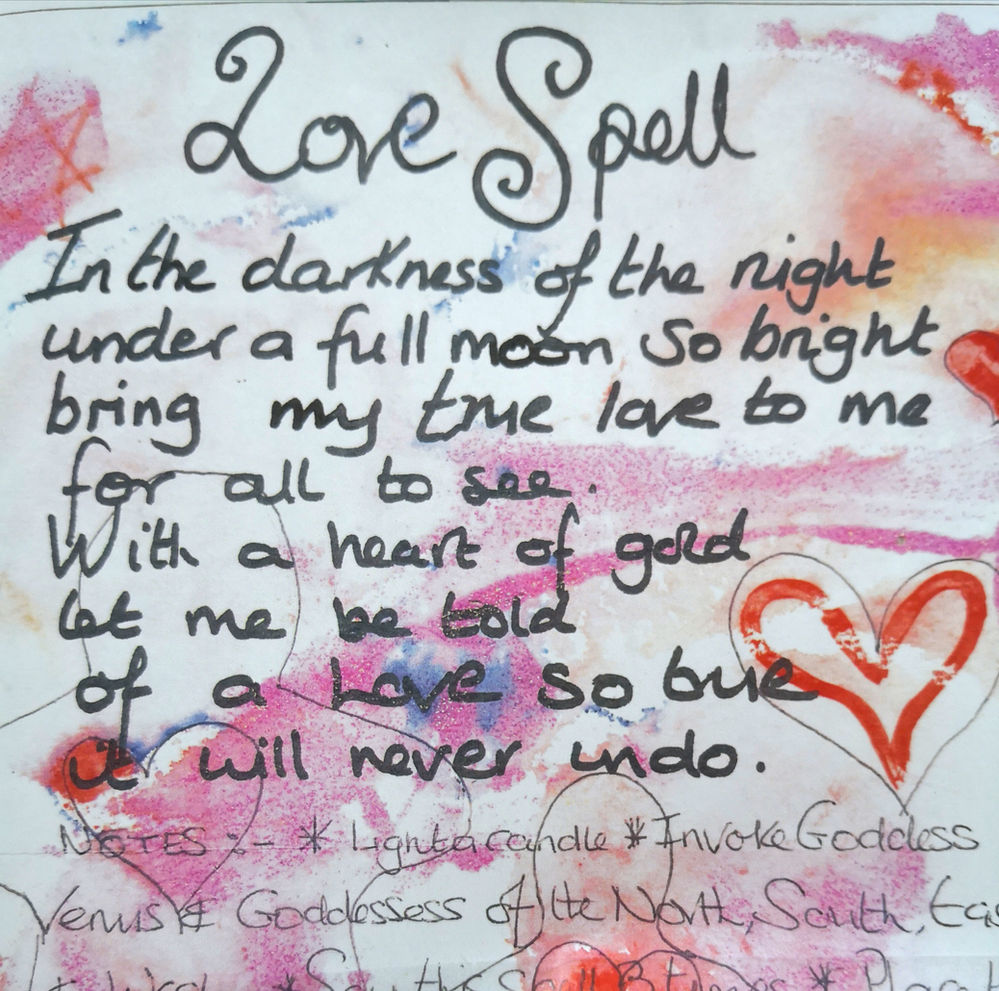 Love Spell
In the darkness of the night
under a full moon so bright
bring my true love to me
for all to see.
With a heart of gold
let me be told
of a Love so true
it will never undo.
NOTES :- * Light a candle * Invoke Goddess
Venus & Goddessess of the North, South, Eas
* Say this Spell * Place